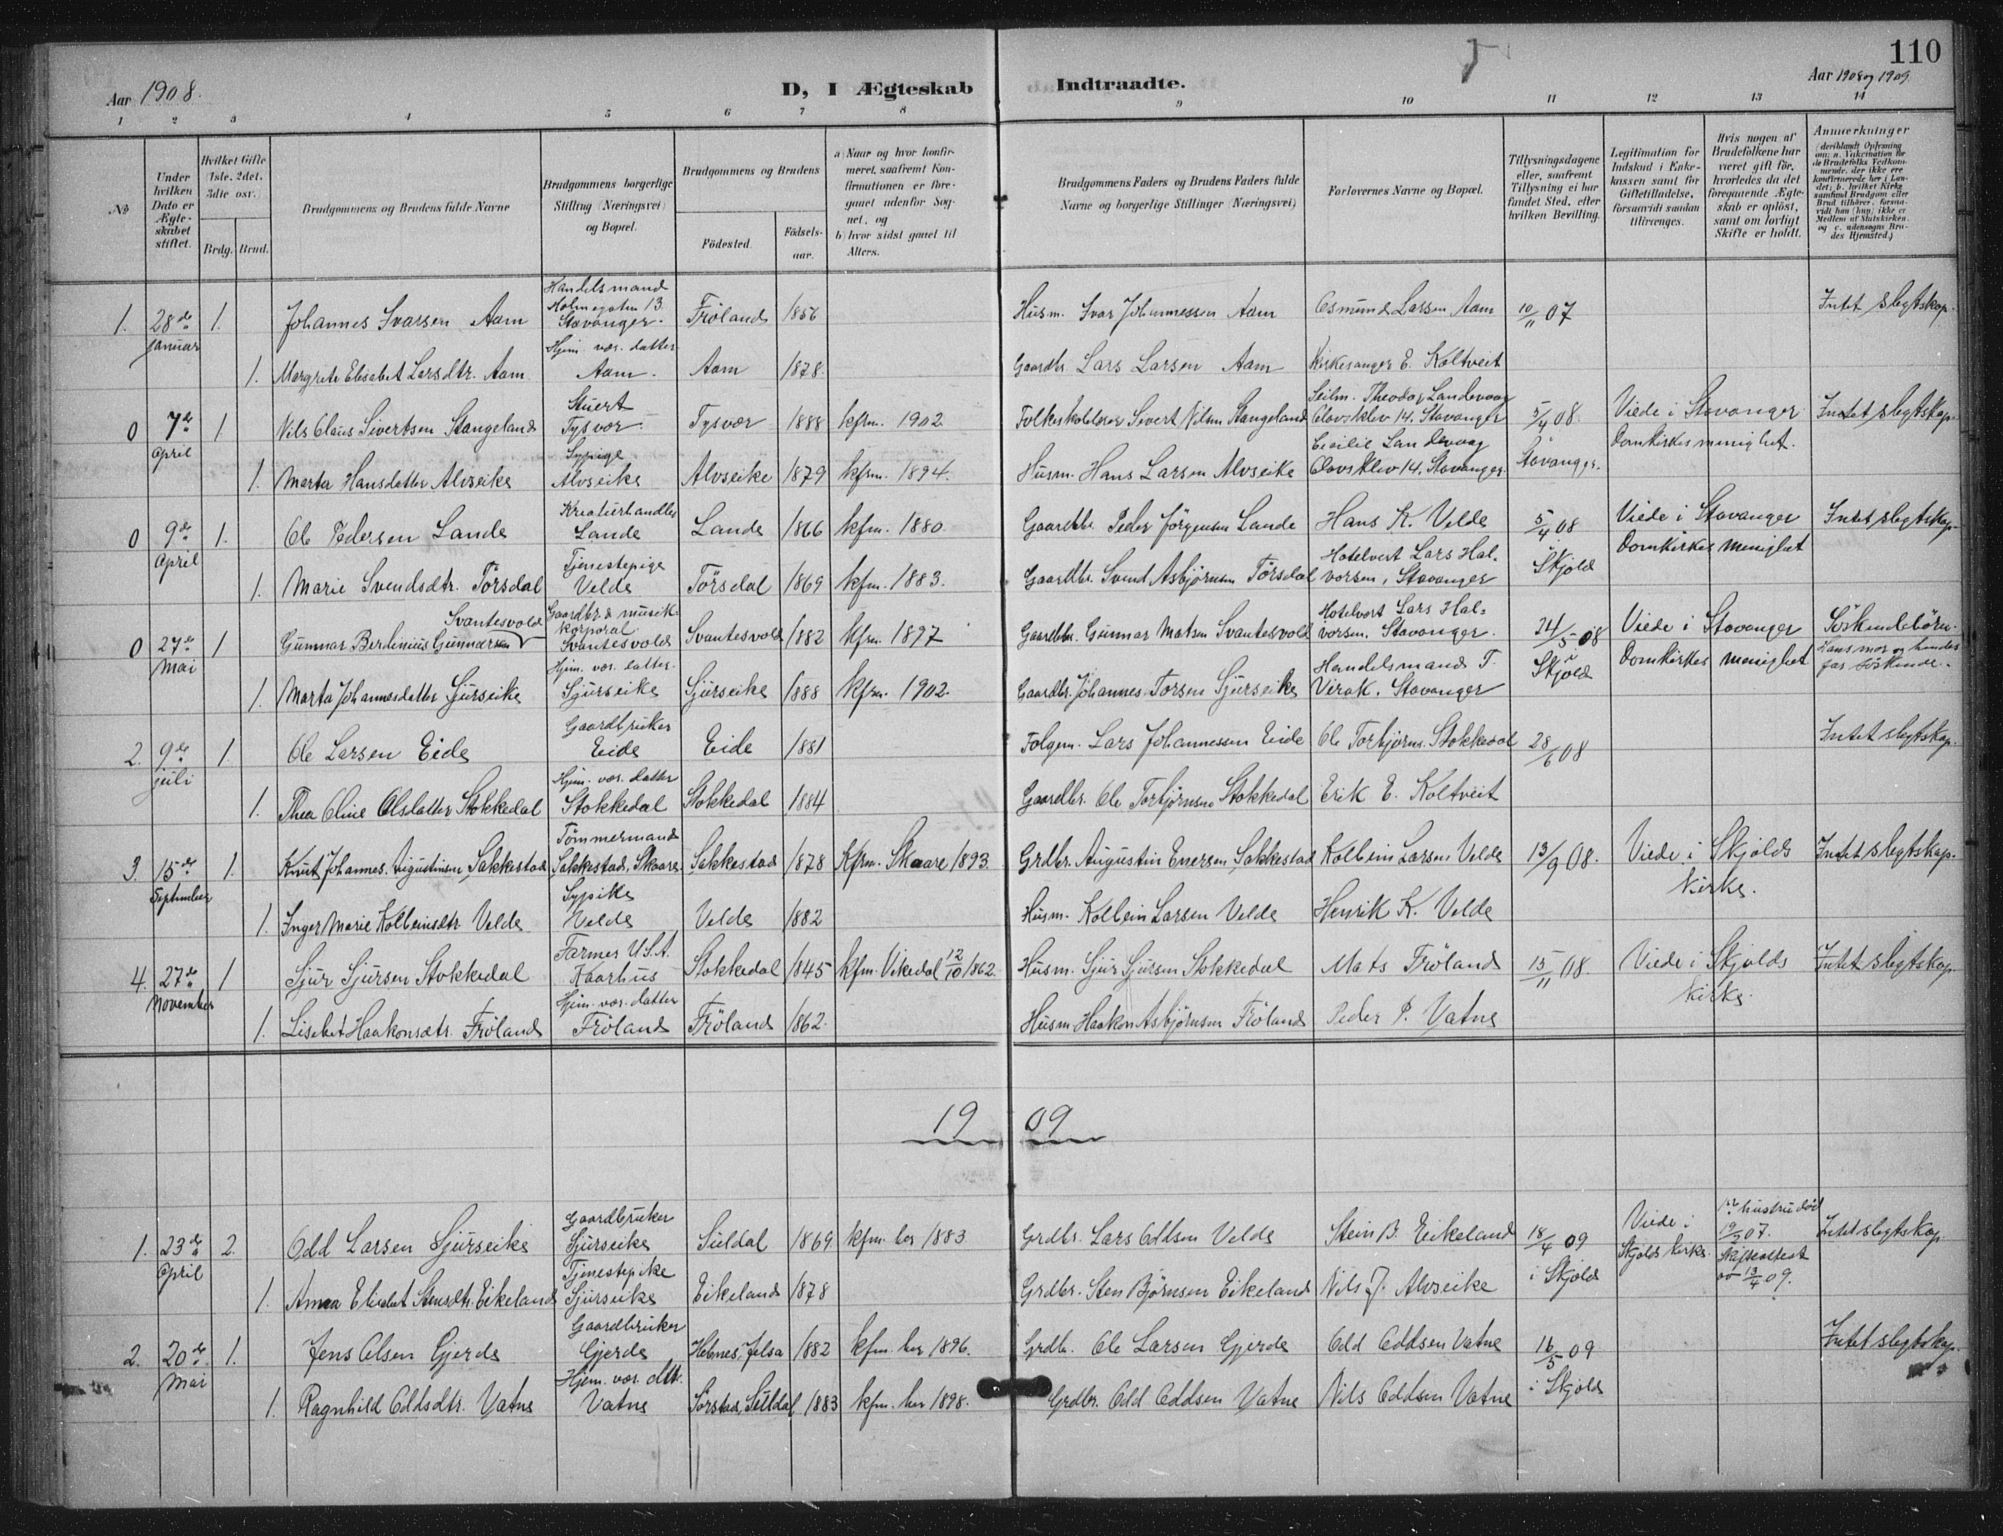 110
Aar 1908.
D, I Ægteskab Indtraadte.
Aar 1908 og 1909
1 2 3 4 5 6 7 8 9 10 11 12 13 14
No
Under hvilken Dato er Ægteskabet stiftet.
Hvilket Gifte (1ste, 2det, 3die osv.)
Brdg. Brud.
Brudgommens og Brudens fulde Navne
Brudgommens borgerlige Stilling (Næringsvei) og Bopæl.
Brudgommens og Brudens
Födested.
Födsels-aar.
a) Naar og hvor konfirmeret, saafremt Konfirmationen er foregaaet udenfor Sognet, og
b) hvor sidst gaaet til Alters.
Brudgommens Faders og Brudens Faders fulde Navne og borgerlige Stillinger (Næringsvei)
Forlovernes Navne og Bopæl.
Tillysningsdagene eller, saafremt Tillysning ei har fundet Sted, efter hvilken Bevilling.
Legitimation for Indskud i Enkekassen samt for Giftetilladelse, forsaavidt saadan tiltrænges.
Hvis nogen af Brudefolkene har været gift før, hvorledes da det foregaaende Ægteskab er oplöst, samt om lovligt Skifte er holdt.
Anmærkninger
1. 28de Januar 1. Johannes Svarsen Aam Handelsmand Holmegaten 13 Stavanger. Fröland 1856 Husm. Svar Johannessen Aam Osmund Larsen Aam 10/11 07 Intet slegtskap.
1. Margrete Elisabet Larsdtr. Aam Hjem. vær. datter Aam. Aam 1878. Gaardbr. Lars Larsen Aam Kirkesanger E. Koltveit
0 7de April 1 Nils Claus Sivertsen Stangeland Stuert Tysvær Tysvær 1888 kfrm. 1902. Folkeskolelærer Sivert Nilsen Stangeland Seilm. Theodor Landevaag Olavsklev 14. Stavanger 5/4 08. Stavanger. Viede i Stavanger Domkirkes menighet. Intet slegtskap.
1. Marta Hansdatter Alvseike Sypige Alvseike Alvseike 1879 kfrm. 1894. Husm. Hans Larsen Alvseike Cecilie Landevaag Olavsklev 14. Stavanger.
0 9de April 1. Ole Pedersen Lande Kreaturhandler Lande Lande 1866 kfrm. 1880. Gaardbr. Peder Jörgensen Lande Hans K. Velde 5/4 08 Skjold Viede i Stavanger Domkirkes menighet Intet slegtskap.
1. Marie Svendsdtr. Törsdal Tjenestepige Velde Törsdal 1869 kfrm. 1883. Gaardbr. Svend Asbjörnsen Törsdal Hotelvert Lars Halvorsen, Stavanger
0 27de Mai 1 Gunnar Berdinius Gunnarsen Svantesvold Gaardbr. & musikkorporal Svantesvold Svantesvold 1882 kfrm. 1897. Gaardbr. Gunnar Matsen Svantesvold Hotelvert Lars Halvorsen. Stavanger. 24/5 08 i Skjold Viede i Stavanger Domkirkes menighet Söskendebörn. Hans mor og hendes far söskende.
1. Marta Johannesdatter Sjurseike Hjem. vær. datter. Sjurseike Sjurseike 1888 kfrm. 1902. Gaardbr. Johannes Torsen Sjurseike Handelsmand T. Virak. Stavanger
2. 9de juli 1. Ole Larsen Eide Gaardbruker Eide Eide 1881 Folgem. Lars Johannessen Eide Ole Torbjörns. Stokkedal 28/6 08 Intet slegtskap.
1. Thea Oline Olsdatter Stokkedal Hjem. vær. datter Stokkedal Stokkedal 1884 Gaardbr. Ole Torbjörnsen Stokkedal Erik E. Koltveit
3. 15de September 1. Knut Johannes Augustinsen Sakkestad Tömmermand Sakkestad, Skaare Sakkestad 1878 Kfrm. Skaare 1893. Grdbr. Augustin Enersen Sakkestad Kolbein Larsen Velde 13/9 08. Viede i Skjolds kirke. Intet slegtskap.
1. Inger Marie Kolbeinsdtr. Velde Sypike Velde Velde 1882 Husm. Kolbein Larsen Velde Henrik K. Velde
4. 27de November 1 Sjur Sjursen Stokkedal Farmer U.S.A. Kaarhus Stokkedal 1845 kfrm. Vikedal 12/10 1862. Husm. Sjur Sjursen Stokkedal Mats Fröland 15/11 08. Viede i Skjolds kirke. Intet slegtskap.
1. Lisebet Haakonsdtr. Fröland Hjem. vær. datter Fröland Fröland 1862. Husm. Haakon Asbjörnsen Fröland Peder P. Vatne
19 09
1. 23de April 2. Odd Larsen Sjurseike Gaardbruker Sjurseike Suldal 1869 kfrm. her 1883 Grdbr. Lars Oddsen Velde Stein B. Eikeland 18/4 09 i Skjold Viede i Skjolds kirke. 1ste hustru död 19/9 07. Skifteattest av 13/4 09. Intet slegtskap.
1. Anna Elisabet Stensdtr. Eikeland Tjenestepike Sjurseike Eikeland 1878 Grdbr. Sten Björnsen Eikeland Nils J. Alvseike
2. 20de Mai 1. Jens Olsen Gjerde Gaardbruker Gjerde Hebnes, Jelsa 1882 kfrm. her 1896. Grdbr. Ole Larsen Gjerde Odd Oddsen Vatne 16/5 09 i Skjold Intet slegtskap.
1. Ragnhild Oddsdtr. Vatne Hjem. vær. dttr. Vatne Sörstad, Suldal 1883 kfm. her 1898. Grdbr. Odd Oddsen Vatne Nils Oddsen Vatne